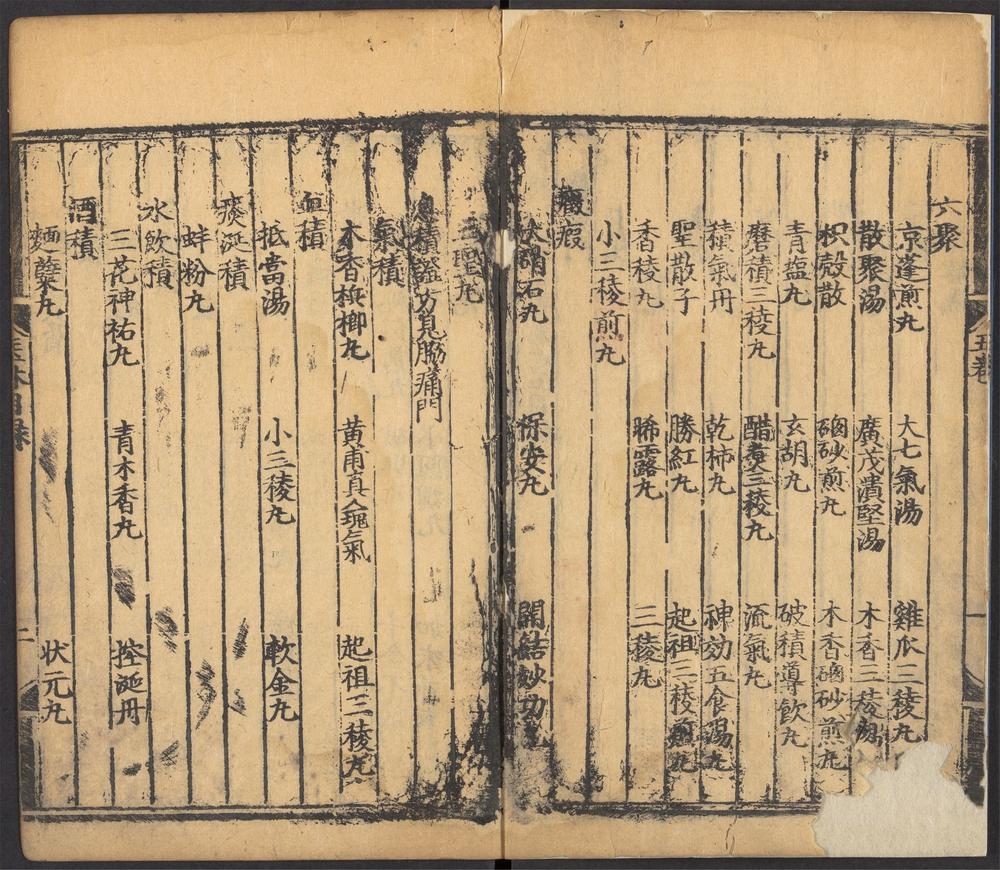 六聚
京蓬煎丸 大七氣湯 雞爪三稜丸
散聚湯 廣茂潰堅湯 木香三稜湯
枳殼散 硇砂煎丸 木香硇砂煎丸
青鹽丸 玄胡丸 破積導飲丸
磨積三稜丸 醋煮三稜丸 流氣丸
積氣丹 乾柿丸 神効五食湯丸
聖散子 勝紅丸 起祖三稜煎丸
香稜丸 晞露丸 三稜丸
小三稜煎丸
癥瘕
硝石丸 保安丸 開結妙功丸
三聖丸
息積謐方見脇痛門
氣積
木香梹榔丸 黄甫真人塊氣 起祖三稜丸
血積
抵當湯 小三稜丸 軟金丸
痰涎積
蚌粉丸
水飲積
三花神祐丸 青木香丸 控涎丹
酒積
麵蘖丸 状元丸
五卷
一
目録
二